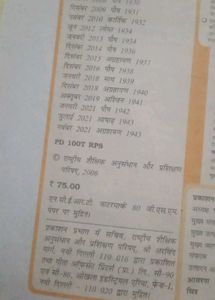 दिसंबर 2009 पौष 1931
नवंबर 2010 कार्तिक 1932
जून 2012 ज्येष्ठ 1934
जनवरी 2013 पौष 1934
दिसंबर 2014 पौष 1936
दिसंबर 2015 अग्रहायण 1937
दिसंबर 2016 पौष 1938
जनवरी 2018 माघ 1939
दिसंबर 2018 अग्रहायण 1940
अक्तूबर 2019 अश्विन 1941
जनवरी 2021 पौष 1942
जुलाई 2021 आषाढ़ 1943
नवंबर 2021 अग्रहायण 1943
PD 100T RPS
© राष्ट्रीय शैक्षिक अनुसंधान और प्रशिक्षण
परिषद्, 2006
₹ 75.00
एन.सी.ई.आर.टी. वाटरमार्क 80 जी.एस.एम.
पेपर पर मुद्रित।
प्रकाशन प्रभाग में सचिव, राष्ट्रीय शैक्षिक
अनुसंधान और प्रशिक्षण परिषद्, श्री अरविंद
मार्ग, नयी दिल्ली 110 016 द्वारा प्रकाशित
तथा गीता ऑफसेट प्रिंटर्स (प्रा.) लि., सी–90
एवं सी–86, ओखला इंडस्ट्रियल एरिया, फेज़-I,
नयी दिल्ली - 110 020 द्वारा मुद्रित।
प्रकाशन